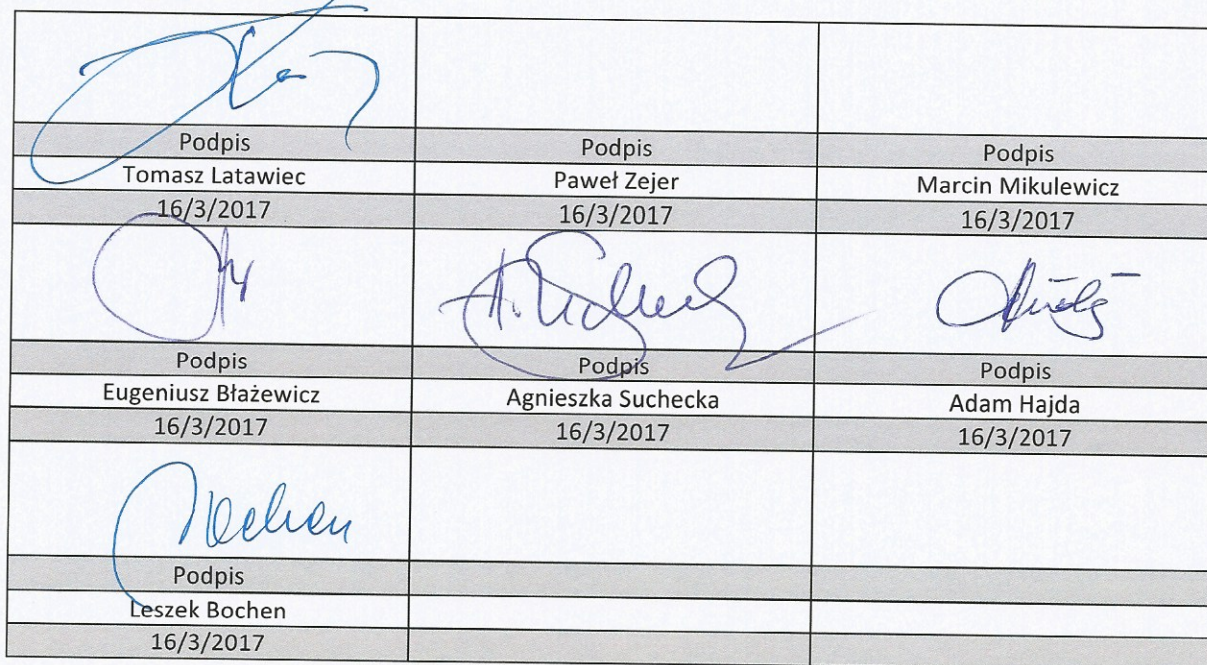 Podpis Podpis Podpis
Tomasz Latawiec Paweł Zejer Marcin Mikulewicz
16/3/2017 16/3/2017 16/3/2017
Podpis Podpis Podpis
Eugeniusz Błażewicz Agnieszka Suchecka Adam Hajda
16/3/2017 16/3/2017 16/3/2017
Podpis
Leszek Bochen
16/3/2017